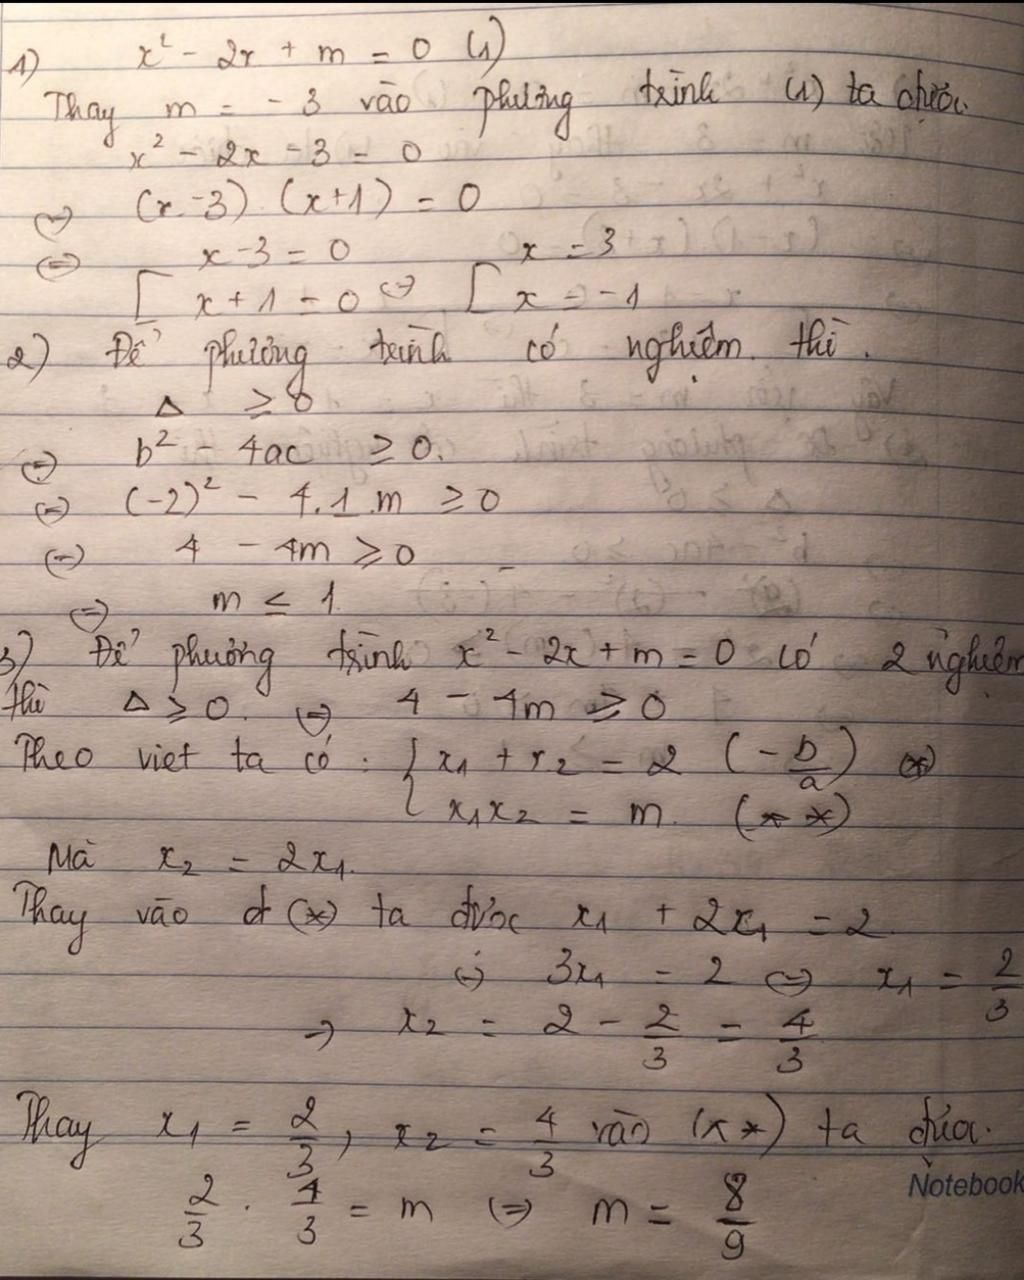 1) x² - 2x + m = 0 (1)
Thay m = - 3 vào phương trình (1) ta được
x² - 2x - 3 = 0
⇔ (x - 3) (x+1) = 0
⇔ [ x - 3 = 0 [ x = 3
x + 1 = 0 ⇔ x = -1
2) Để phương trình có nghiệm thì
Δ ≥ 0
⇔ b² - 4ac ≥ 0.
⇔ (-2)² - 4.1.m ≥ 0
⇔ 4 - 4m ≥ 0
⇔ m ≤ 1
3) Để phương trình x² - 2x + m = 0 có 2 nghiệm
thì Δ ≥ 0. ⇔ 4 - 4m ≥ 0
Theo viet ta có : { x₁ + x₂ = 2 (-b/a) (*)
x₁x₂ = m. (**)
Mà x₂ = 2x₁.
Thay vào (*) ta được x₁ + 2x₁ = 2
⇔ 3x₁ = 2 ⇔ x₁ = 2/3
⇒ x₂ = 2 - 2/3 = 4/3
Thay x₁ = 2/3, x₂ = 4/3 vào (**) ta được.
Notebook
2/3 . 4/3 = m ⇔ m = 8/9